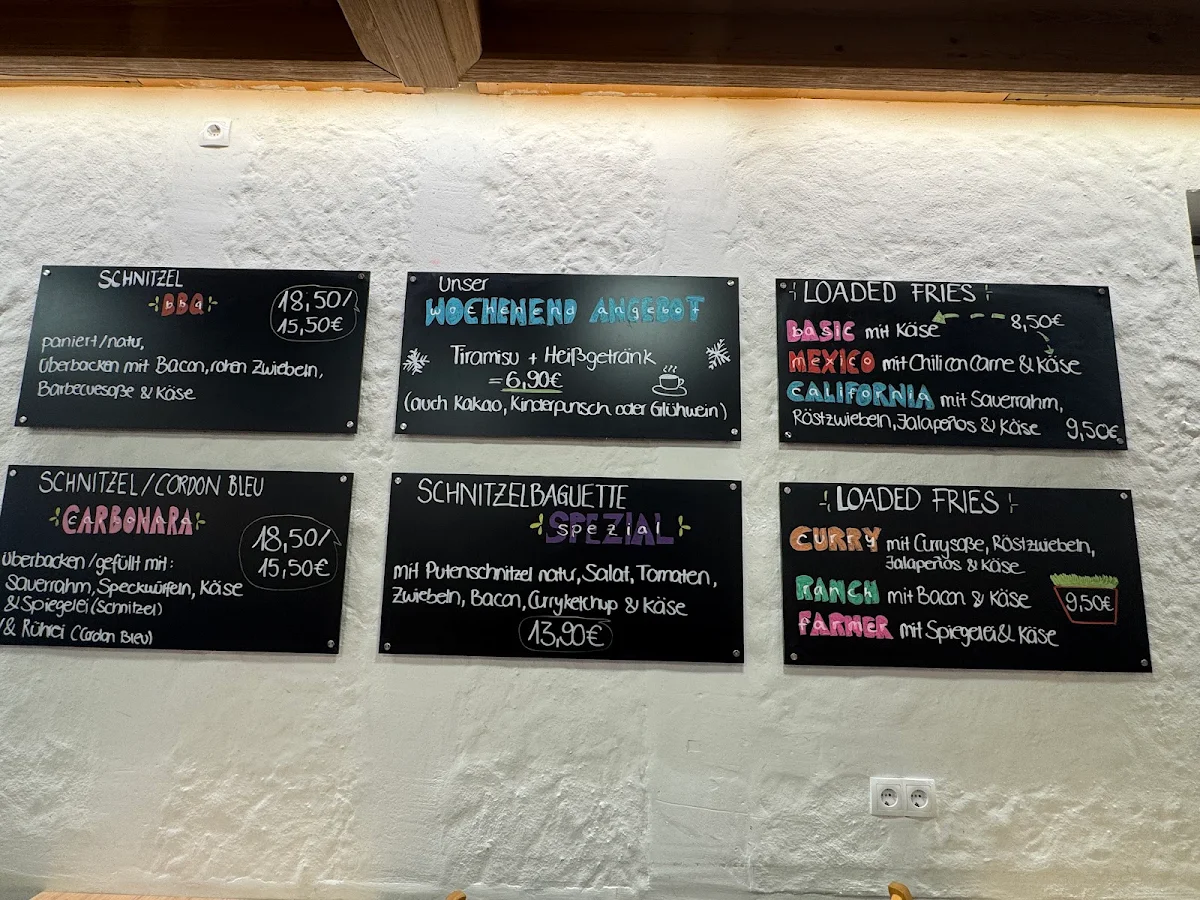 SCHNITZEL
BBQ
18,50/
15,50€
paniert/natur,
überbacken mit Bacon, roten Zwiebeln,
Barbecuesoße & Käse
Unser
WOCHENEND ANGEBOT
Tiramisu + Heißgetränk
= 6,90€
(auch Kakao, Kinderpunsch oder Glühwein)
LOADED FRIES
BASIC mit Käse 8,50€
MEXICO mit Chili con Carne & Käse
CALIFORNIA mit Sauerrahm,
Röstzwiebeln, Jalapeños & Käse 9,50€
SCHNITZEL/CORDON BLEU
CARBONARA
18,50/
15,50€
überbacken/gefüllt mit:
Sauerrahm, Speckwürfeln, Käse
& Spiegelei (Schnitzel)
/& Rührei (Cordon Bleu)
SCHNITZELBAGUETTE
SPEZIAL
mit Putenschnitzel natur, Salat, Tomaten,
Zwiebeln, Bacon, Curryketchup & Käse
13,90€
LOADED FRIES
CURRY mit Currysoße, Röstzwiebeln,
Jalapeños & Käse
RANCH mit Bacon & Käse
9,50€
FARMER mit Spiegelei & Käse